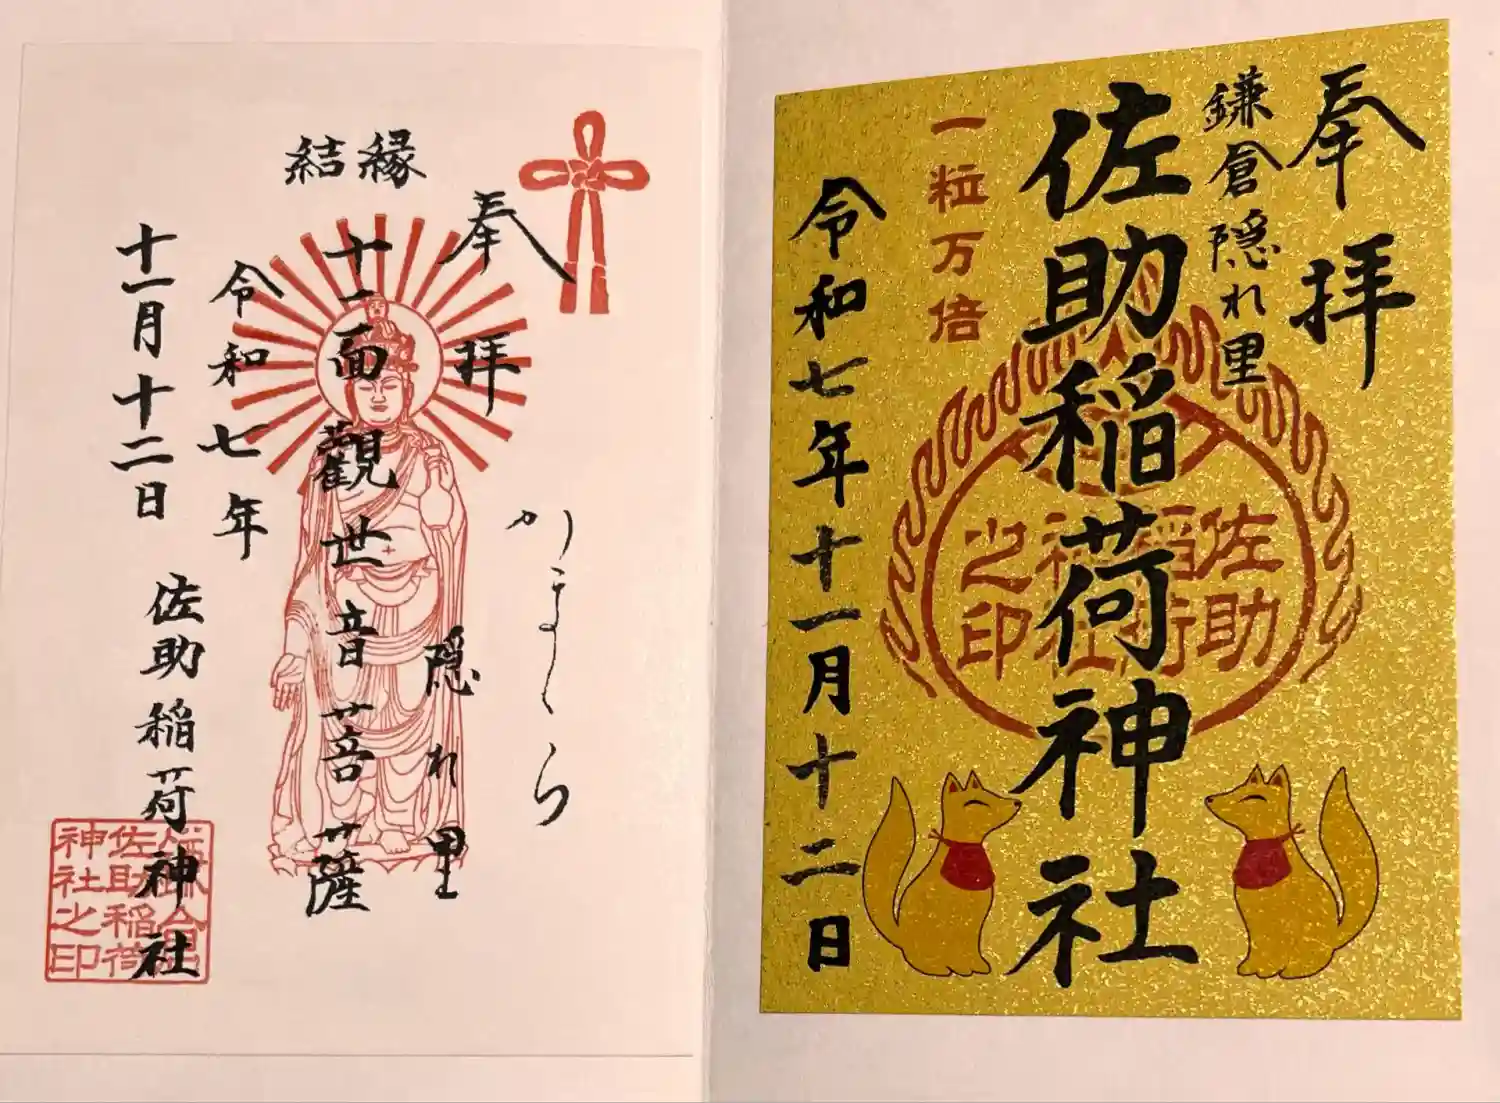 奉拝
鎌倉隠れ里
佐助稲荷神社
一粒万倍
令和七年十一月十二日
佐助稲荷神社之印
奉拝
かまくら
隠れ里
縁結
十一面觀世音菩薩
令和七年
十一月十二日
佐助稲荷神社
佐助稲荷
神社之印